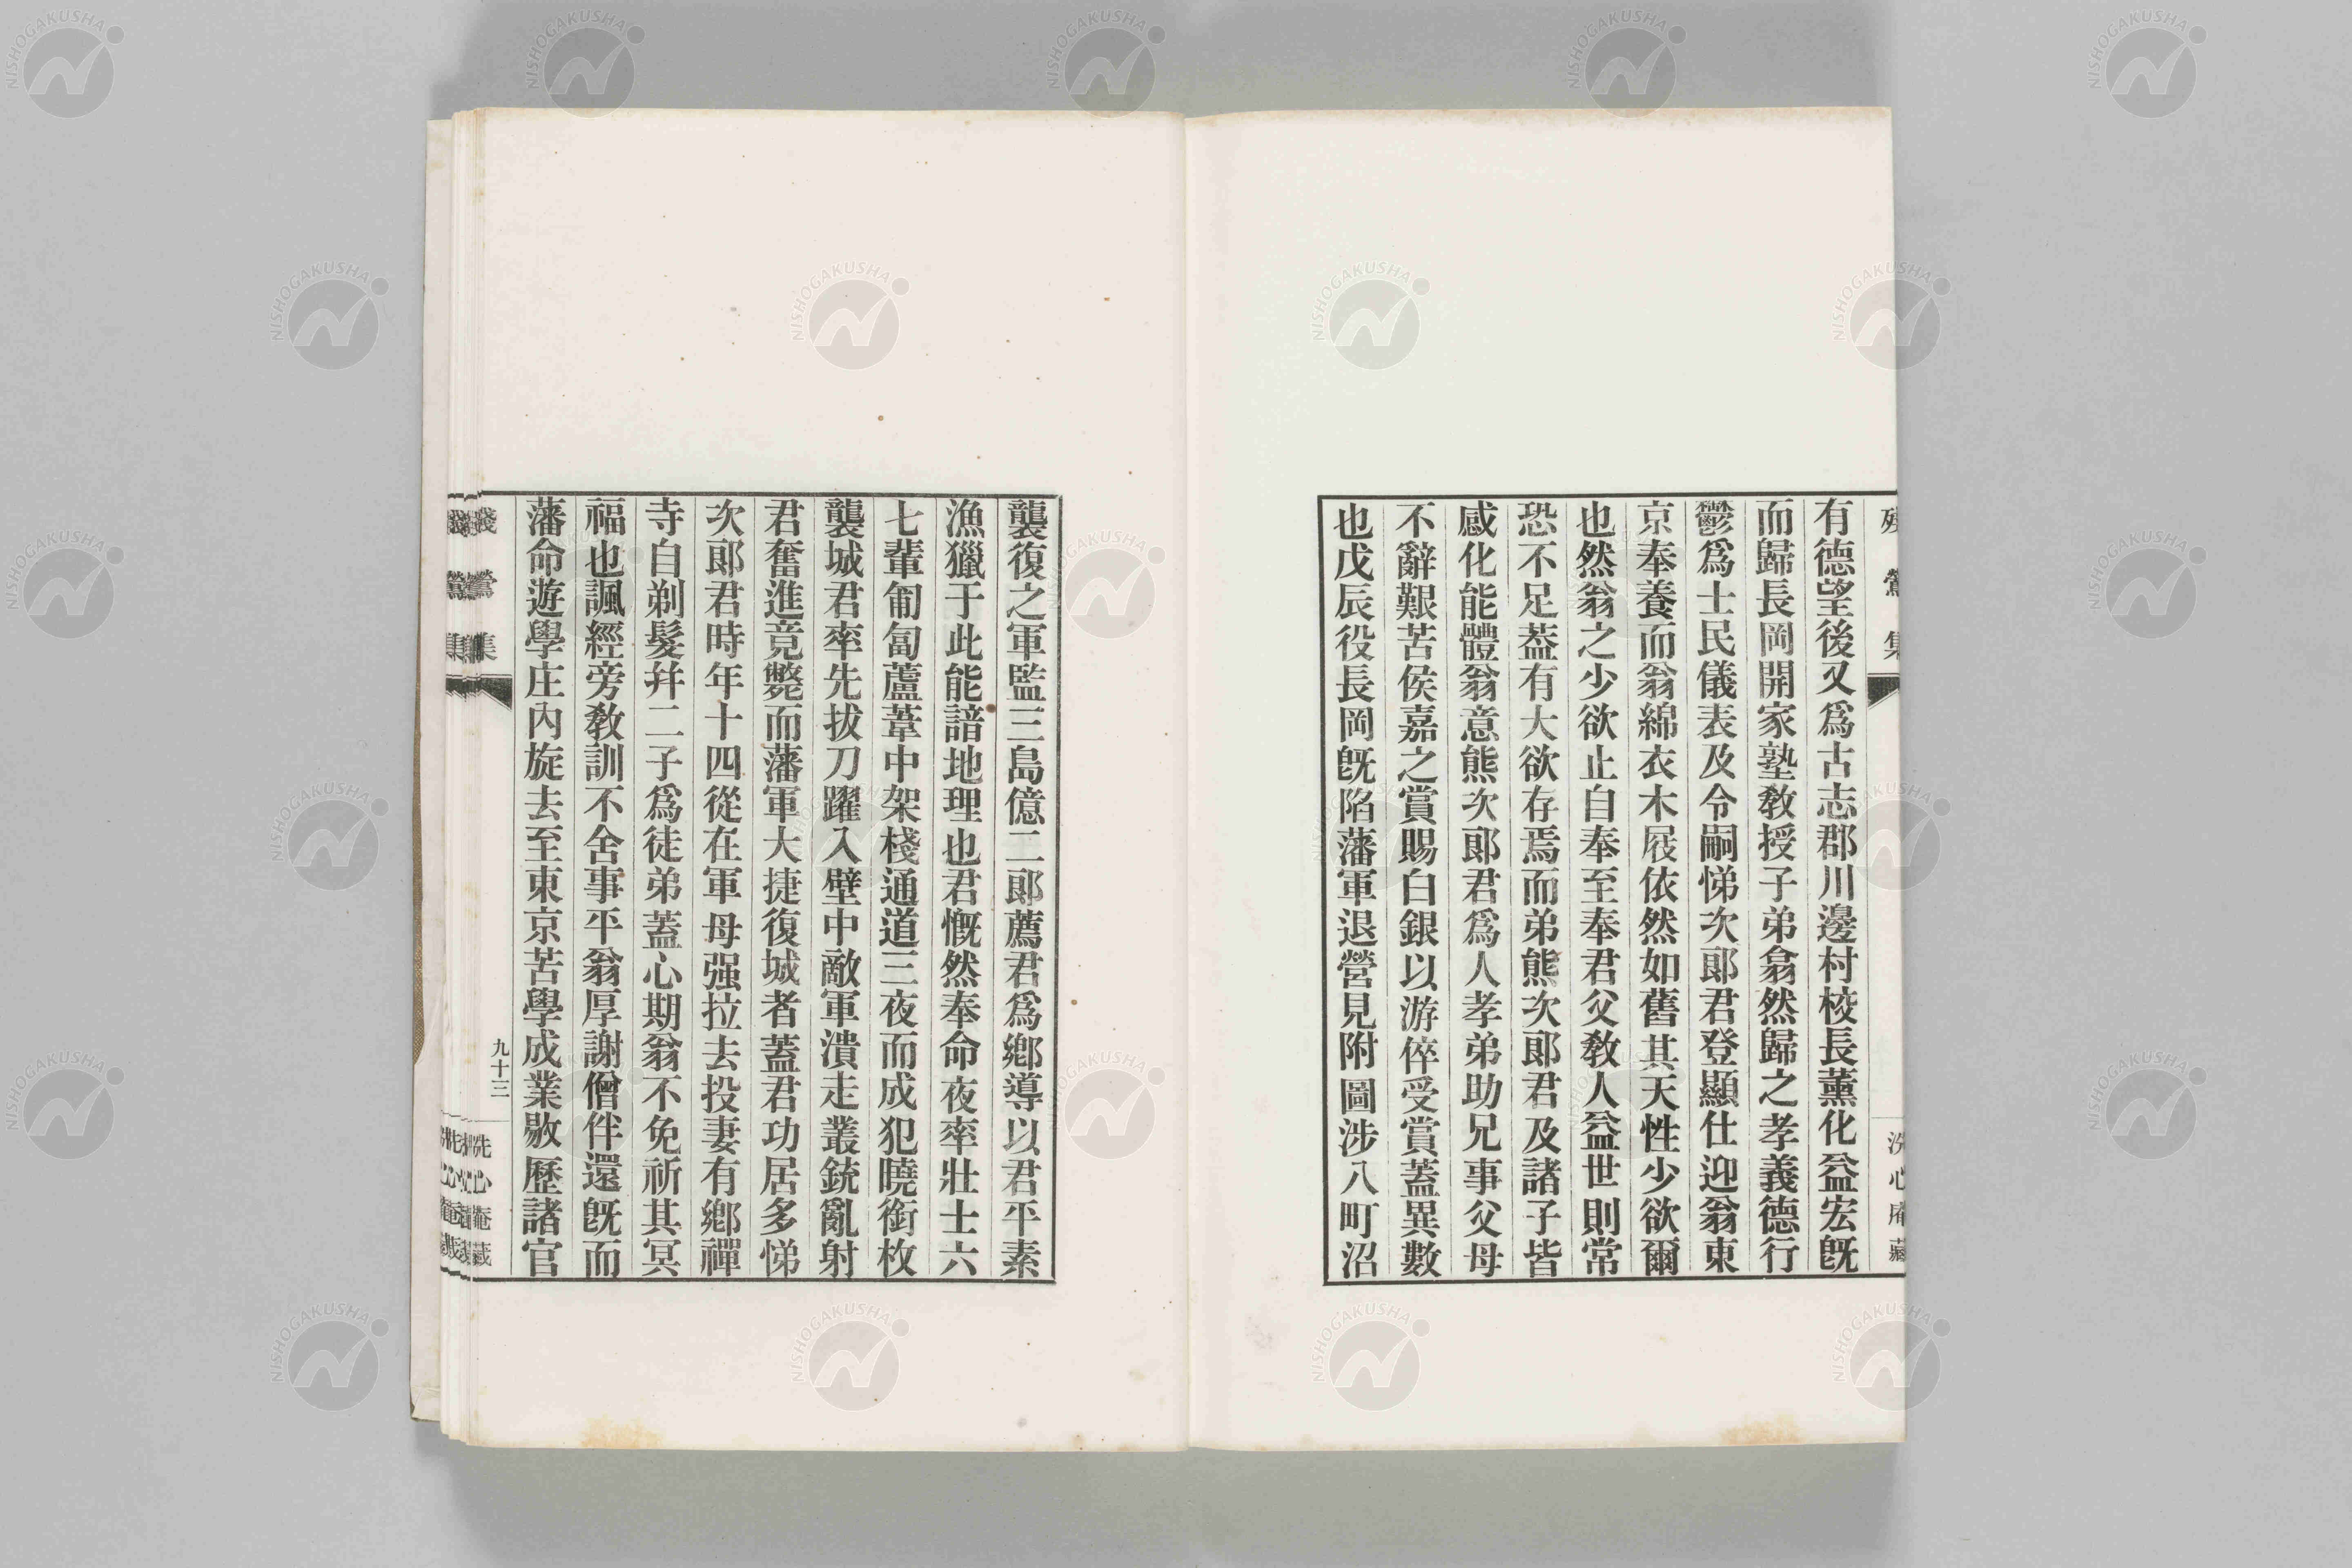 有德望後又爲古志郡川邊村校長薰化益宏旣
而歸長岡開家塾敎授子弟翕然歸之孝義德行
鬱爲士民儀表及令嗣悌次郞君登顯仕迎翁東
京奉養而翁綿衣木屐依然如舊其天性少欲爾
也然翁之少欲止自奉至奉君父敎人益世則常
恐不足葢有大欲存焉而弟熊次郞君及諸子皆
感化能體翁意熊次郞君爲人孝弟助兄事父母
不辭艱苦侯嘉之賞賜白銀以游倅受賞蓋異數
也戊辰役長岡旣陷藩軍退營見附圖涉八町沼
襲復之軍監三島億二郞薦君爲鄕導以君平素
漁獵于此能諳地理也君慨然奉命夜率壯士六
七輩匍匐蘆葦中架棧通道三夜而成犯曉銜枚
襲城君率先拔刀躍入壁中敵軍潰走叢銃亂射
君奮進竟斃而藩軍大捷復城者蓋君功居多悌
次郞君時年十四從在軍母强拉去投妻有鄕禪
寺自剃髮幷二子爲徒弟蓋心期翁不免祈其冥
福也諷經旁敎訓不舍事平翁厚謝僧伴還旣而
藩命遊學庄內旋去至東京苦學成業敭歷諸官
殘鶯集
九十三
洗心庵藏